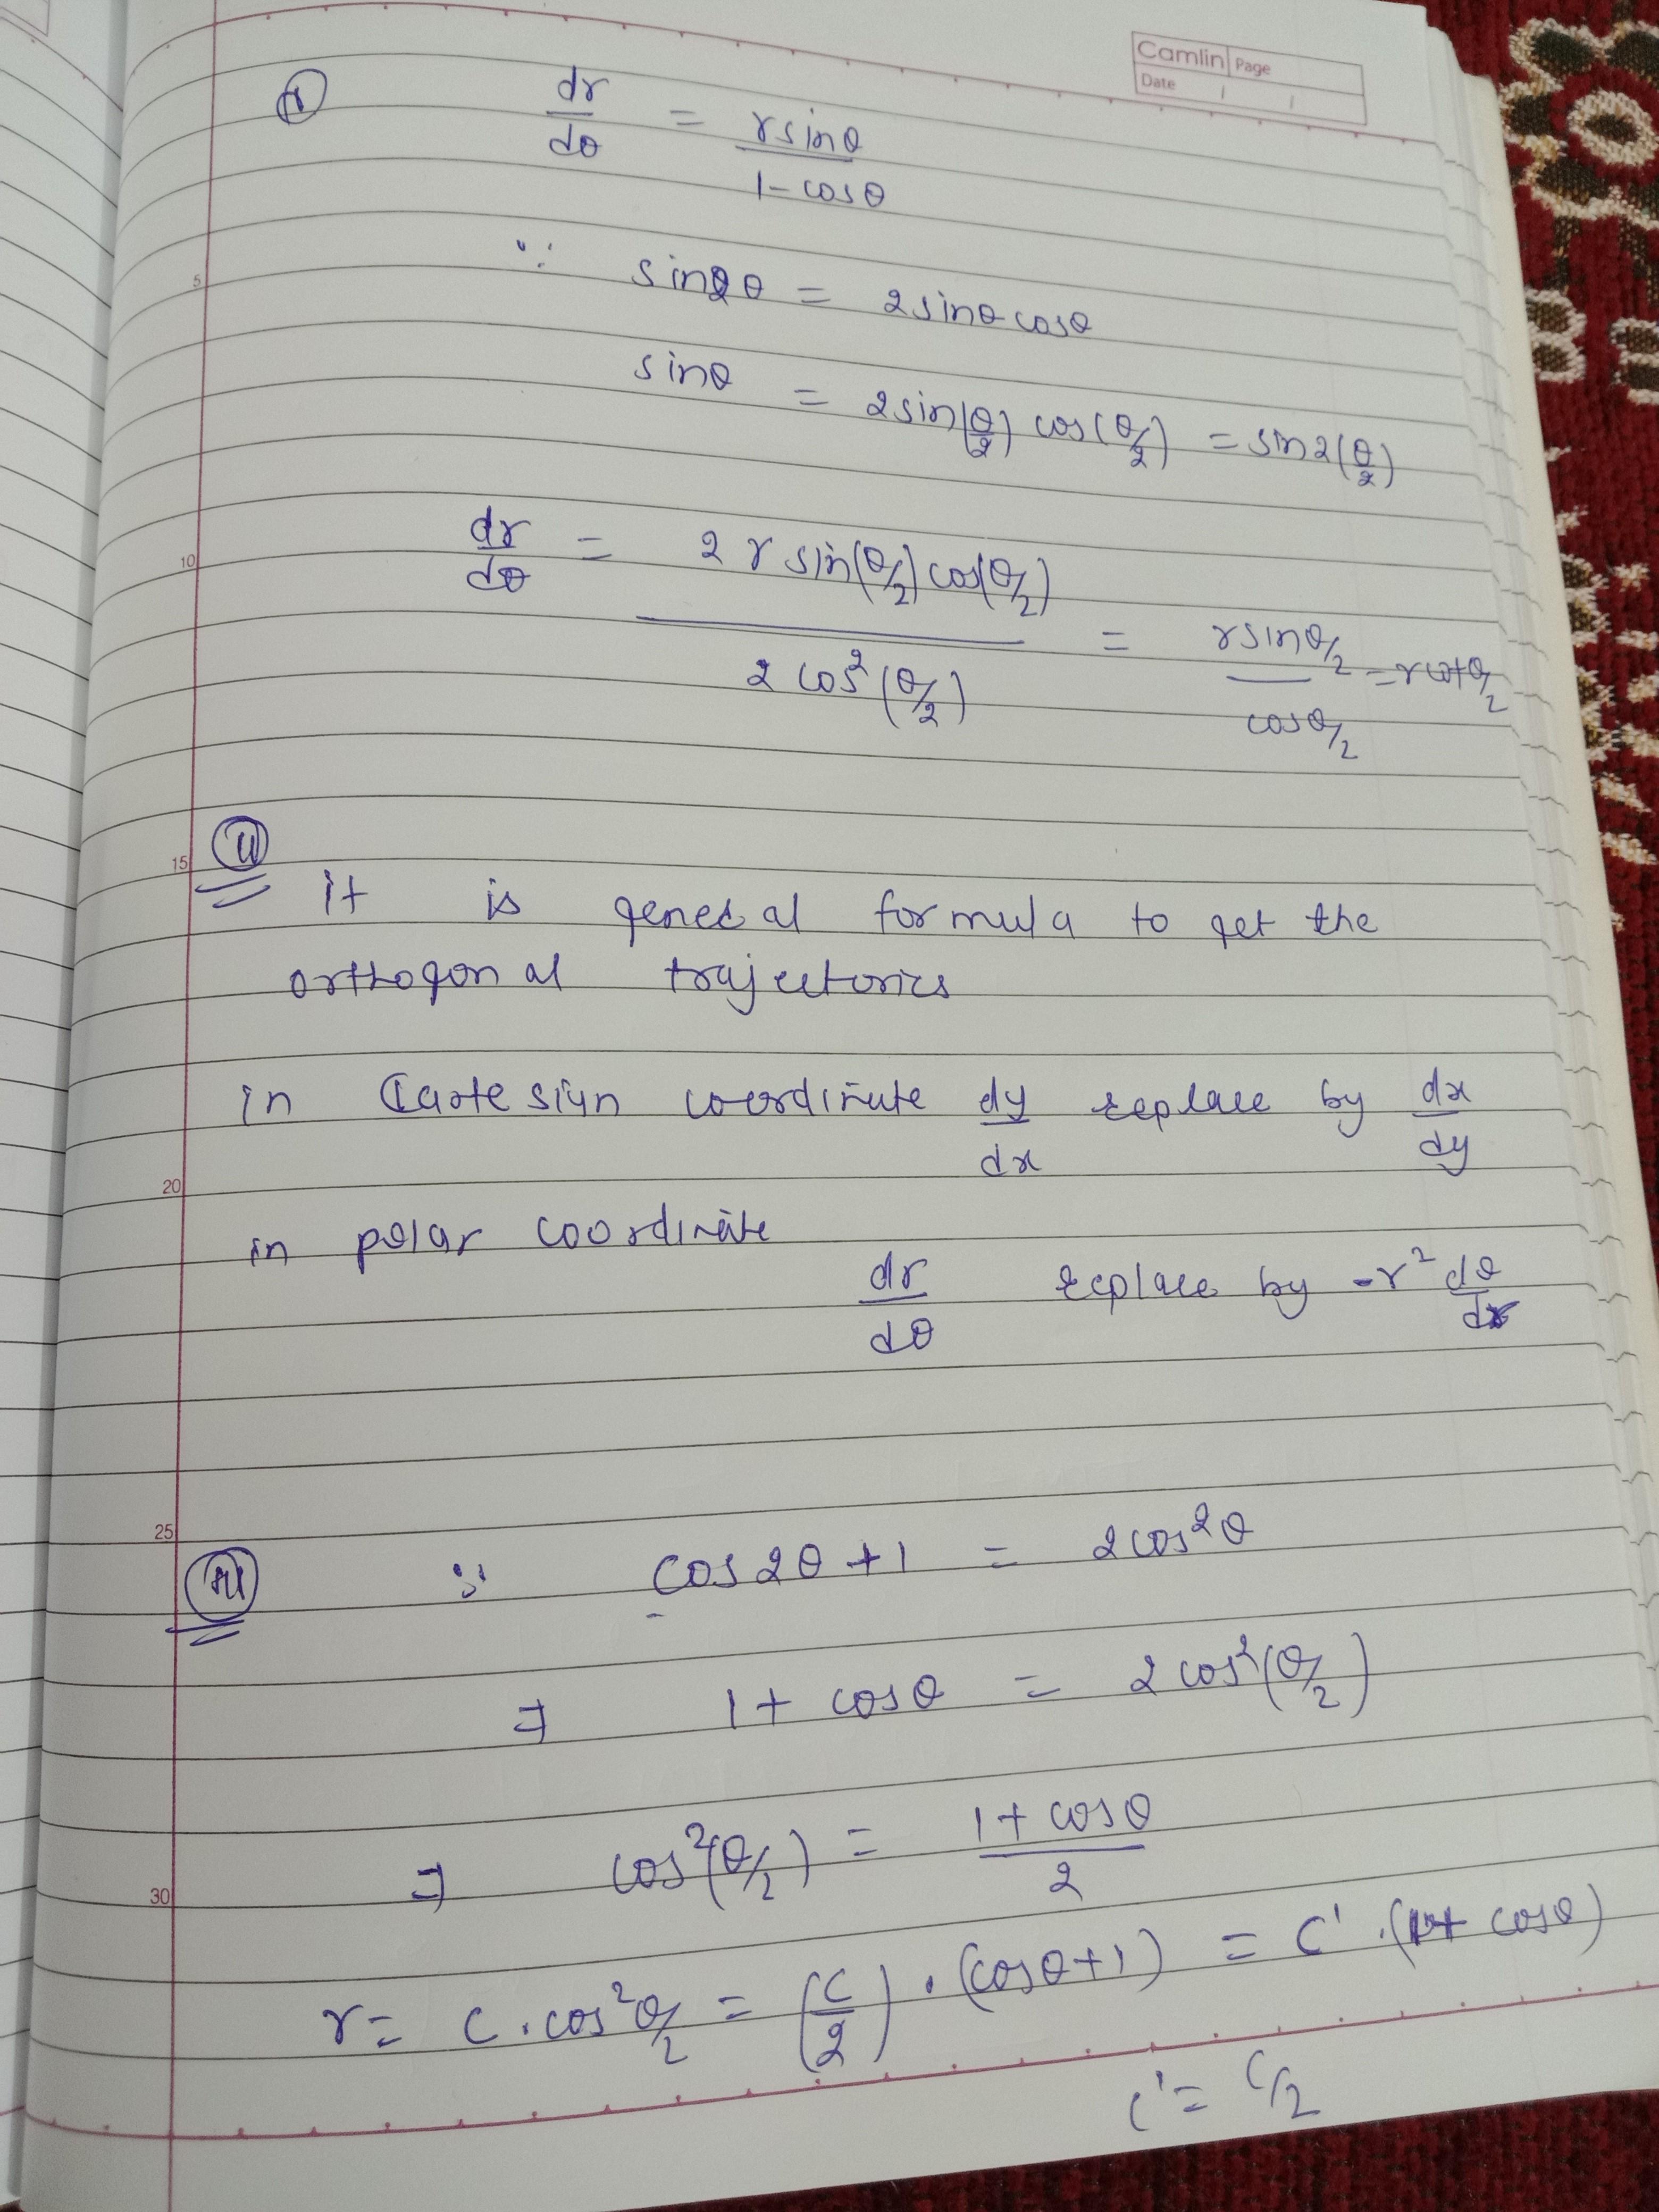 Camlin Page
Date / /
(I) dr/dθ = r sinθ / 1 - cosθ
∵ sin2θ = 2sinθ cosθ
5
sinθ = 2sin(θ/2) cos(θ/2) = sin2(θ/2)
10
dr/dθ = 2 r sin(θ/2) cos(θ/2) / 2 cos²(θ/2) = r sinθ/2 / cosθ/2 = r cotθ/2
15
(II)
it is general formula to get the
orthogonal trajectories
in Cartesian coordinate dy/dx replace by dx/dy
20
in polar coordinate
dr/dθ replace by -r² dθ/dr
25
(III) ∵ cos2θ + 1 = 2cos²θ
⇒ 1 + cosθ = 2cos²(θ/2)
⇒ cos²(θ/2) = 1 + cosθ / 2
30
r = c . cos²θ/2 = (c/2) . (cosθ+1) = c' . (1+ cosθ)
c' = c/2